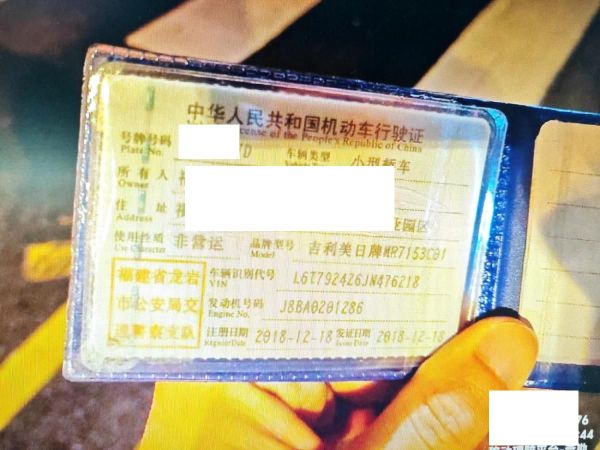 中华人民共和国机动车行驶证
cense of the People's Republic of China
号牌号码 D 车辆类型 小型轿车
Plate No.
所有人
Owner
住 址 业园区
Address
使用性质 非营运 品牌型号 吉利美日牌MR7153C01
Use Character Model
福建省龙岩 车辆识别代号 L6T7924Z6JN476218
VIN
市公安局交 发动机号码 J8BA0201286
Engine No.
通警察支队 注册日期 2018-12-18 发证日期 2018-12-18
RegisterDate Issue Date
76
44